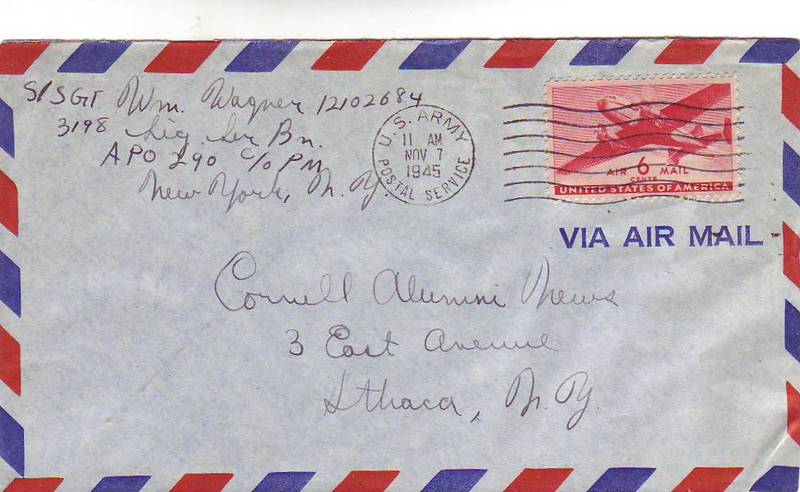 S/SGT Wm. Wagner 12102684
3198 Sig. Ser Bn.
APO 290 c/o PM
New York, N.Y.
U.S. ARMY
11 AM
NOV 7
1945
POSTAL SERVICE
AIR 6 MAIL
CENTS
UNITED STATES OF AMERICA
VIA AIR MAIL
Cornell Alumni News
3 East Avenue
Ithaca, N.Y.